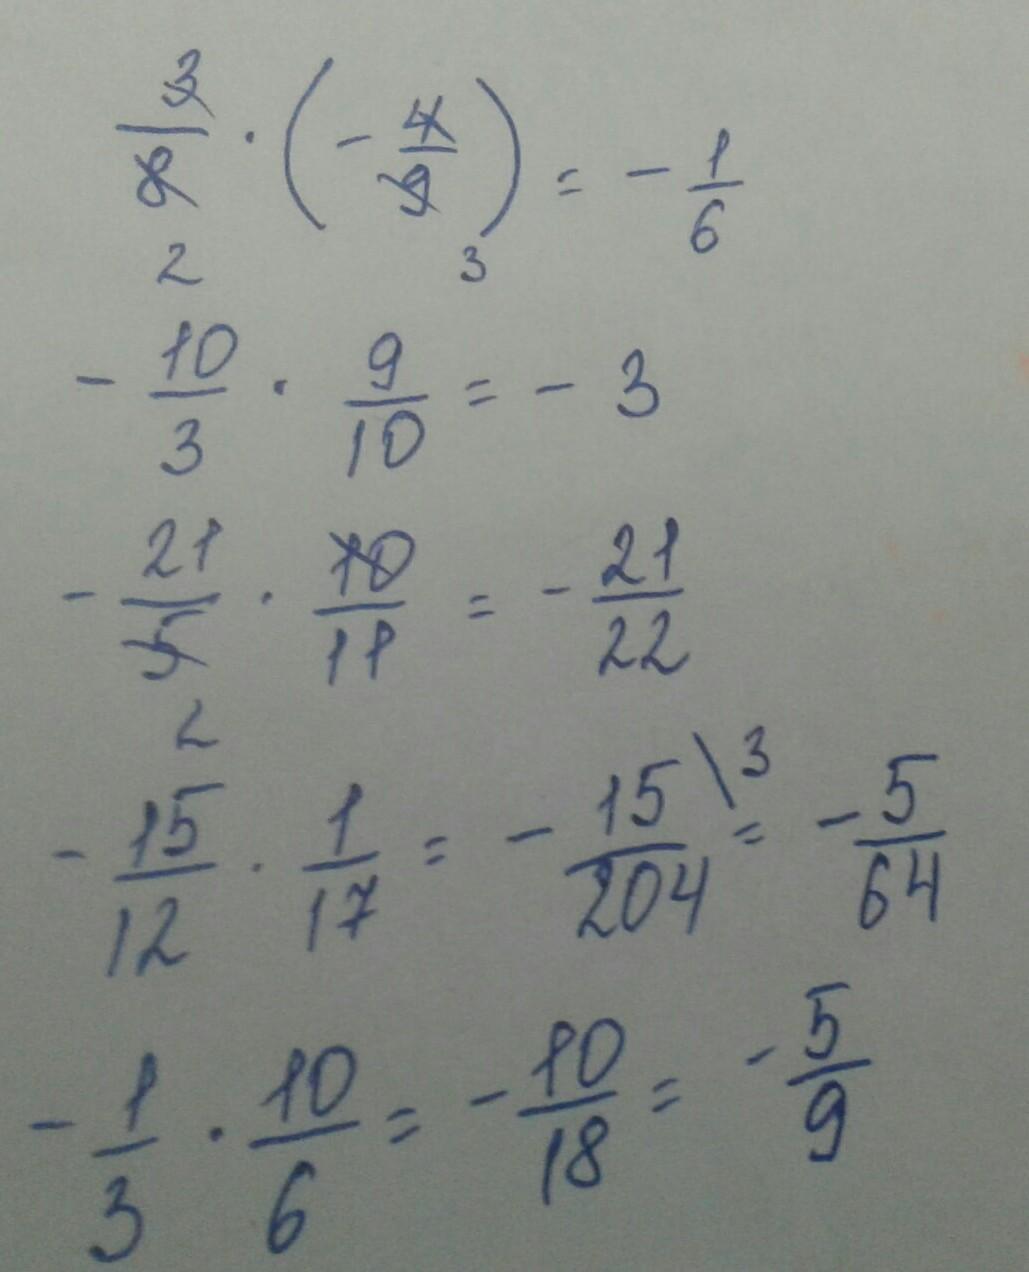 3/8 · (- 4/9) = - 1/6
2 3
- 10/3 · 9/10 = - 3
- 21/5 · 10/11 = - 21/22
2
- 15/12 · 1/17 = - 15/204 \3 = - 5/64
- 1/3 · 10/6 = - 10/18 = - 5/9